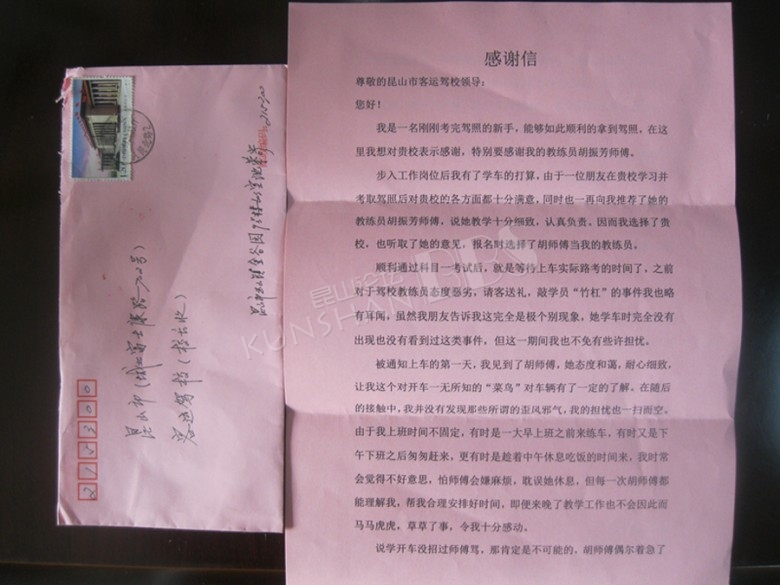 感谢信
尊敬的昆山市客运驾校领导:
您好!
我是一名刚刚考完驾照的新手，能够如此顺利的拿到驾照，在这
里我想对贵校表示感谢，特别要感谢我的教练员胡振芳师傅。
步入工作岗位后我有了学车的打算，由于一位朋友在贵校学习并
考取驾照后对贵校的各方面都十分满意，同时也一再向我推荐了她的
教练员胡振芳师傅，说她教学十分细致，认真负责。因而我选择了贵
校，也听取了她的意见，报名时选择了胡师傅当我的教练员。
顺利通过科目一考试后，就是等待上车实际路考的时间了，之前
对于驾校教练员态度恶劣，请客送礼，敲学员“竹杠”的事件我也略
有耳闻，虽然我朋友告诉我这完全是极个别现象，她学车时完全没有
出现也没有看到过这类事件，但这一期间我也不免有些许担忧。
被通知上车的第一天，我见到了胡师傅，她态度和蔼，耐心细致，
让我这个对开车一无所知的“菜鸟”对车辆有了一定的了解。在随后
的接触中，我并没有发现那些所谓的歪风邪气，我的担忧也一扫而空。
由于我上班时间不固定，有时是一大早上班之前来练车，有时又是下
午下班之后匆匆赶来，更有时是趁着中午休息吃饭的时间来，我时常
会觉得不好意思，怕师傅会嫌麻烦，耽误她休息，但每一次胡师傅都
能理解我，帮我合理安排好时间，即便来晚了教学工作也不会因此而
马马虎虎，草草了事，令我十分感动。
说学开车没招过师傅骂，那肯定是不可能的，胡师傅偶尔着急了
215300
昆山市
客运驾校
215300
昆山论坛
KUNSHAN BBS